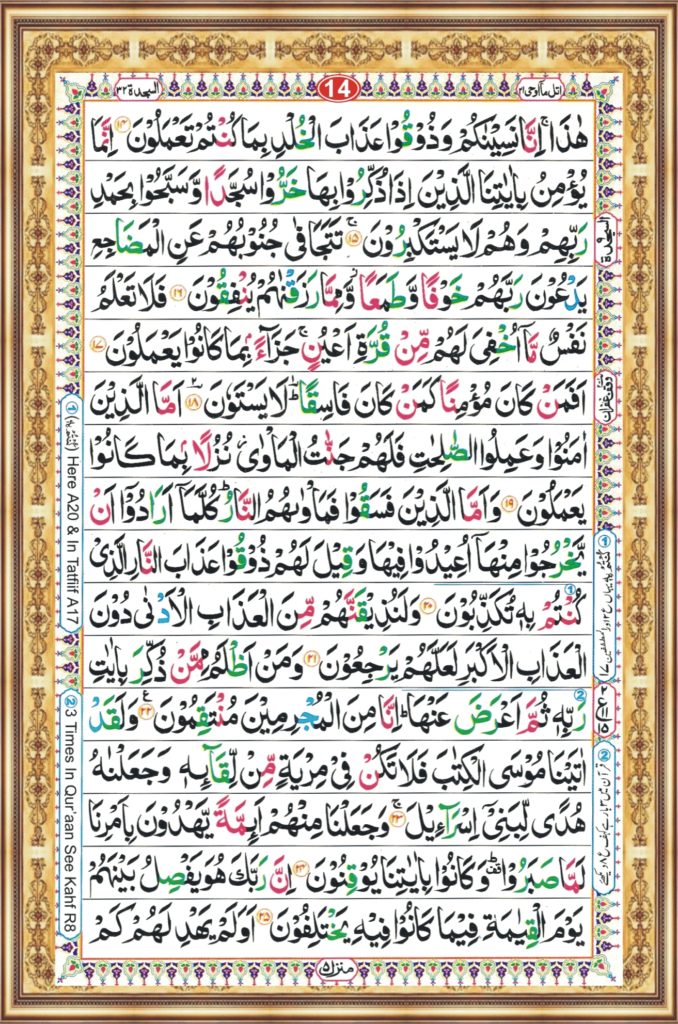 السجدة ٣٢
14
اتل ما اوحی ٢١
هٰذَا ۚ اِنَّا نَسِيْنٰكُمْ وَذُوْقُوْا عَذَابَ الْخُلْدِ بِمَا كُنْتُمْ تَعْمَلُوْنَ ۝١٤ اِنَّمَا
يُؤْمِنُ بِاٰيٰتِنَا الَّذِيْنَ اِذَا ذُكِّرُوْا بِهَا خَرُّوْا سُجَّدًا وَّسَبَّحُوْا بِحَمْدِ
رَبِّهِمْ وَهُمْ لَا يَسْتَكْبِرُوْنَ ۝١٥ تَتَجَافٰى جُنُوْبُهُمْ عَنِ الْمَضَاجِعِ
يَدْعُوْنَ رَبَّهُمْ خَوْفًا وَّطَمَعًا وَّمِمَّا رَزَقْنٰهُمْ يُنْفِقُوْنَ ۝١٦ فَلَا تَعْلَمُ
نَفْسٌ مَّآ اُخْفِىَ لَهُمْ مِّنْ قُرَّةِ اَعْيُنٍ ۚ جَزَآءًۢ بِمَا كَانُوْا يَعْمَلُوْنَ ۝١٧
اَفَمَنْ كَانَ مُؤْمِنًا كَمَنْ كَانَ فَاسِقًا ؕ لَا يَسْتَوٗنَ ۝١٨ اَمَّا الَّذِيْنَ
اٰمَنُوْا وَعَمِلُوا الصّٰلِحٰتِ فَلَهُمْ جَنّٰتُ الْمَاْوٰى نُزُلًاۢ بِمَا كَانُوْا
يَعْمَلُوْنَ ۝١٩ وَاَمَّا الَّذِيْنَ فَسَقُوْا فَمَاْوٰىهُمُ النَّارُ ؕ كُلَّمَآ اَرَادُوْٓا اَنْ
يَّخْرُجُوْا مِنْهَآ اُعِيْدُوْا فِيْهَا وَقِيْلَ لَهُمْ ذُوْقُوْا عَذَابَ النَّارِ الَّذِىْ
كُنْتُمْ بِهٖ تُكَذِّبُوْنَ ۝٢٠ وَلَنُذِيْقَنَّهُمْ مِّنَ الْعَذَابِ الْاَدْنٰى دُوْنَ
الْعَذَابِ الْاَكْبَرِ لَعَلَّهُمْ يَرْجِعُوْنَ ۝٢١ وَمَنْ اَظْلَمُ مِمَّنْ ذُكِّرَ بِاٰيٰتِ
رَبِّهٖ ثُمَّ اَعْرَضَ عَنْهَا ؕ اِنَّا مِنَ الْمُجْرِمِيْنَ مُنْتَقِمُوْنَ ۝٢٢ وَلَقَدْ
اٰتَيْنَا مُوْسَى الْكِتٰبَ فَلَا تَكُنْ فِىْ مِرْيَةٍ مِّنْ لِّقَآئِهٖ وَجَعَلْنٰهُ
هُدًى لِّبَنِىْٓ اِسْرَآءِيْلَ ۝٢٣ وَجَعَلْنَا مِنْهُمْ اَئِمَّةً يَّهْدُوْنَ بِاَمْرِنَا
لَمَّا صَبَرُوْا ؕ وَكَانُوْا بِاٰيٰتِنَا يُوْقِنُوْنَ ۝٢٤ اِنَّ رَبَّكَ هُوَ يَفْصِلُ بَيْنَهُمْ
يَوْمَ الْقِيٰمَةِ فِيْمَا كَانُوْا فِيْهِ يَخْتَلِفُوْنَ ۝٢٥ اَوَلَمْ يَهْدِ لَهُمْ كَمْ
السجدة
وقف غفران
① (كُنْتُمْ بِهٖ) Here A20 & In Tatfiif A17
② 3 Times In Qur'aan See Kahf R8
منزل ٥